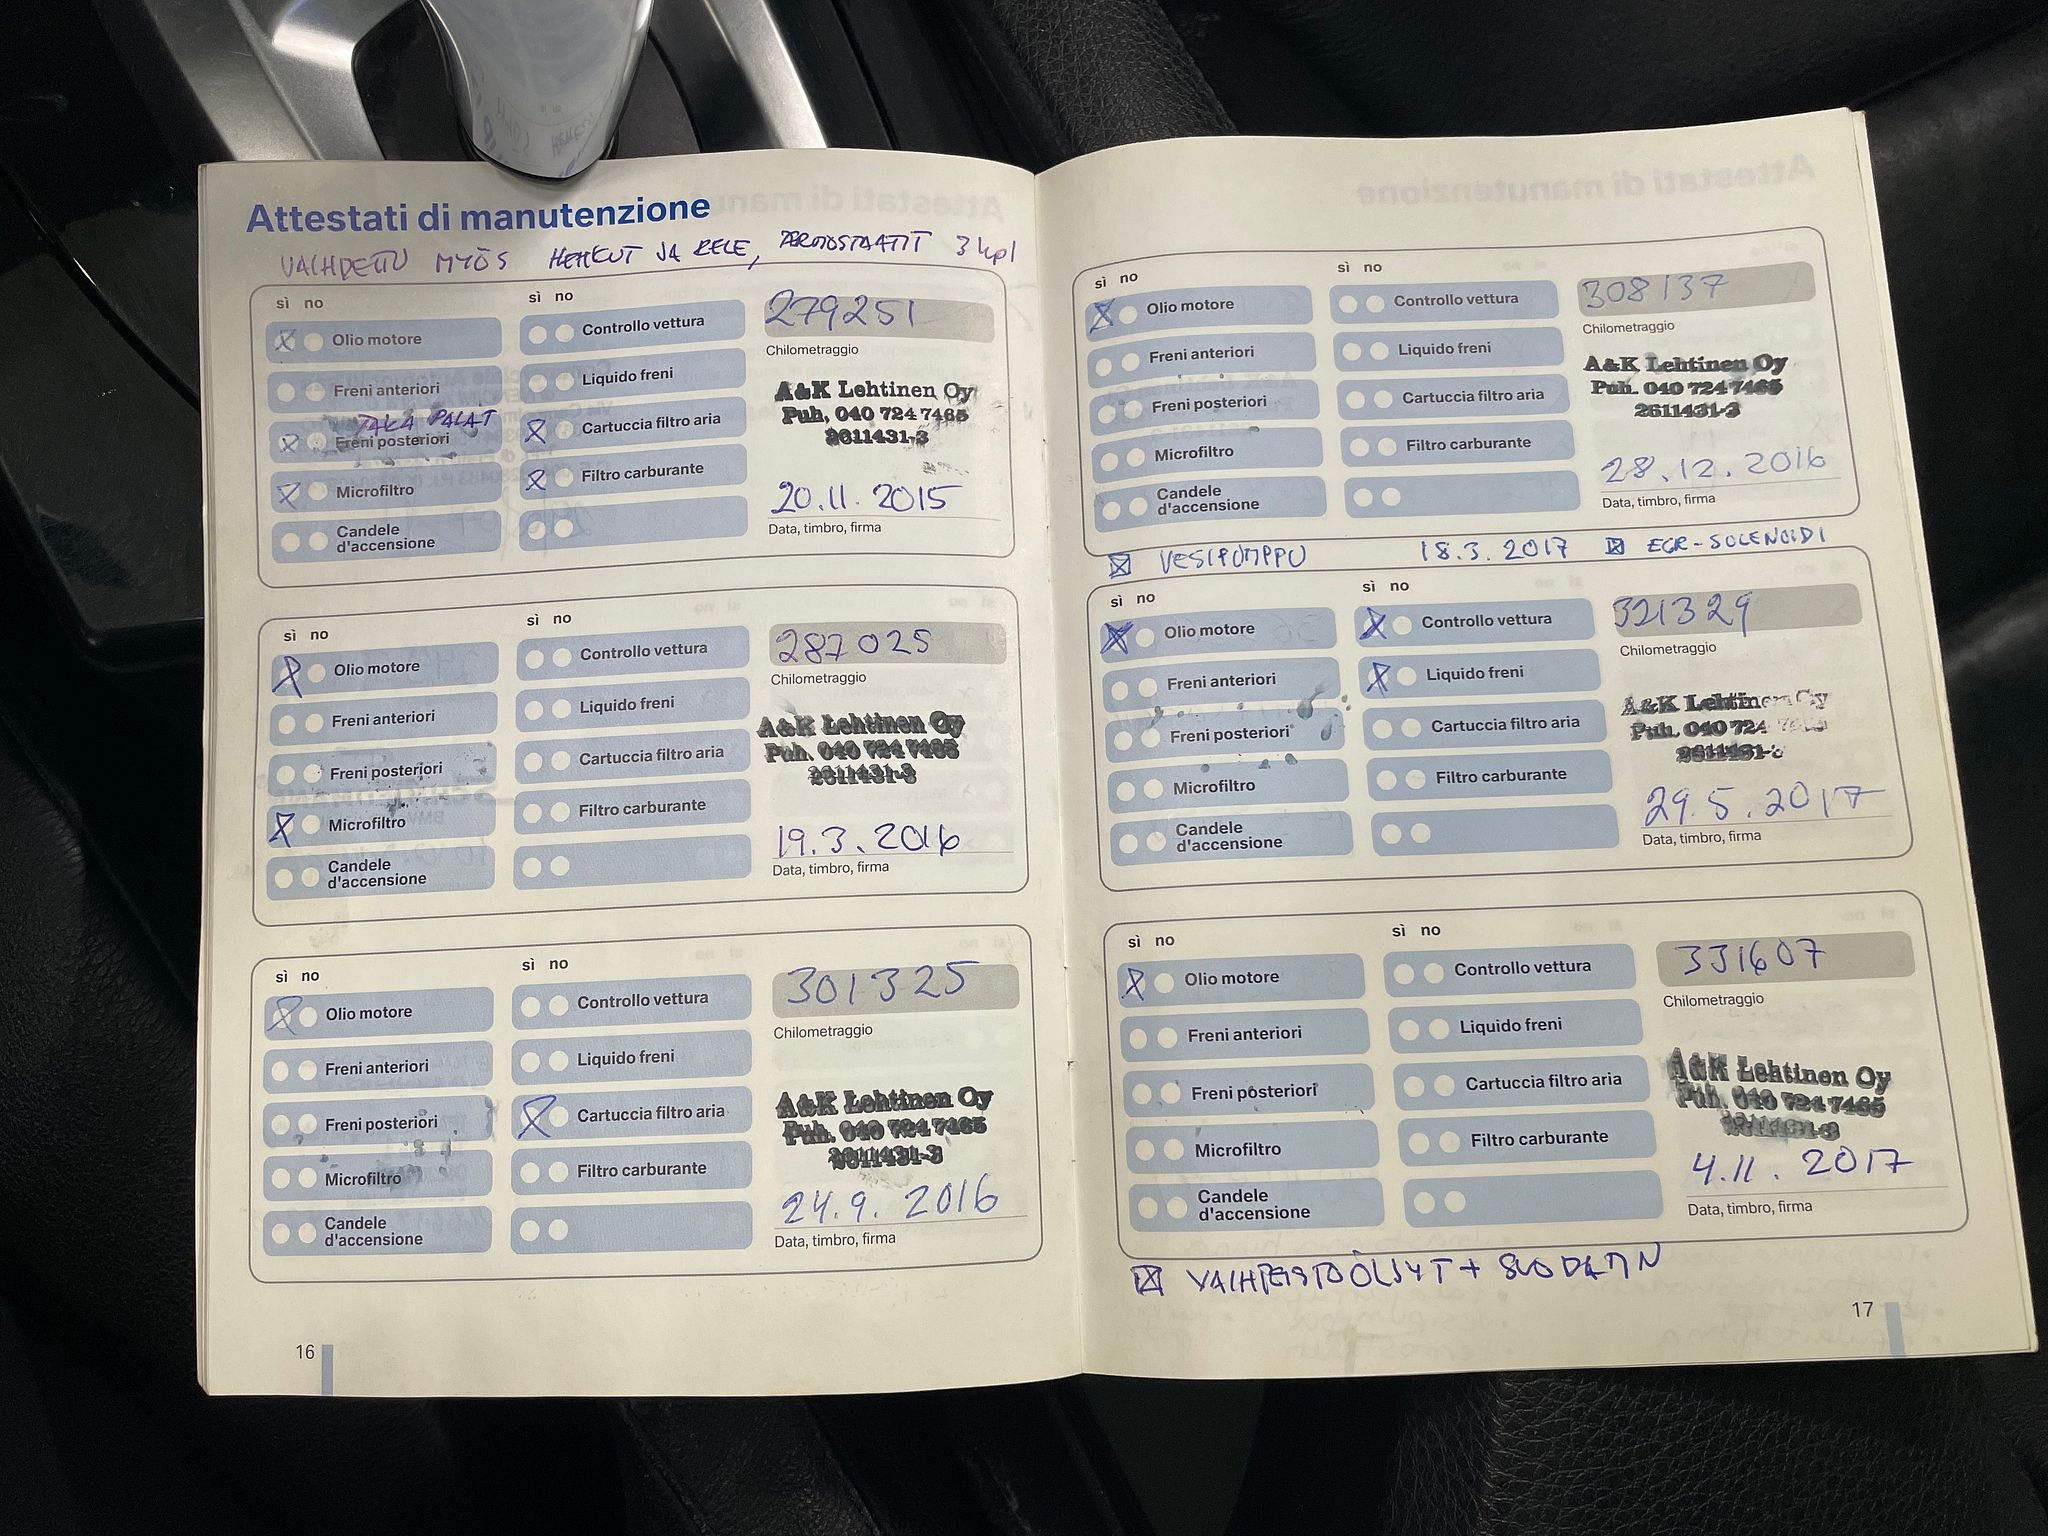 Attestati di manutenzione
VAIHDETTU MYÖS HEHKUT JA RELE, TERMOSTAATIT 3 kpl
sì no
Olio motore
Freni anteriori
TAKA PALAT
Freni posteriori
Microfiltro
Candele
d'accensione
sì no
Controllo vettura
Liquido freni
Cartuccia filtro aria
Filtro carburante
279251
Chilometraggio
A&K Lehtinen Oy
Puh. 040 724 7465
2611431-3
20.11.2015
Data, timbro, firma
sì no
Olio motore
Freni anteriori
Freni posteriori
Microfiltro
Candele
d'accensione
sì no
Controllo vettura
Liquido freni
Cartuccia filtro aria
Filtro carburante
287025
Chilometraggio
A&K Lehtinen Oy
Puh. 040 724 7465
2611431-3
19.3.2016
Data, timbro, firma
sì no
Olio motore
Freni anteriori
Freni posteriori
Microfiltro
Candele
d'accensione
sì no
Controllo vettura
Liquido freni
Cartuccia filtro aria
Filtro carburante
301325
Chilometraggio
A&K Lehtinen Oy
Puh. 040 724 7465
2611431-3
24.9.2016
Data, timbro, firma
16
sì no
Olio motore
Freni anteriori
Freni posteriori
Microfiltro
Candele
d'accensione
sì no
Controllo vettura
Liquido freni
Cartuccia filtro aria
Filtro carburante
308137
Chilometraggio
A&K Lehtinen Oy
Puh. 040 724 7465
2611431-3
28.12.2016
Data, timbro, firma
VESIPUMPPU 18.3.2017 EGR-SOLENOIDI
sì no
Olio motore
Freni anteriori
Freni posteriori
Microfiltro
Candele
d'accensione
sì no
Controllo vettura
Liquido freni
Cartuccia filtro aria
Filtro carburante
321329
Chilometraggio
A&K Lehtinen Oy
Puh. 040 724
2611431-3
29.5.2017
Data, timbro, firma
sì no
Olio motore
Freni anteriori
Freni posteriori
Microfiltro
Candele
d'accensione
sì no
Controllo vettura
Liquido freni
Cartuccia filtro aria
Filtro carburante
331607
Chilometraggio
A&K Lehtinen Oy
Puh. 040 724 7465
2611431-3
4.11.2017
Data, timbro, firma
VAIHTEISTOÖLJYT + SUODATIN
17